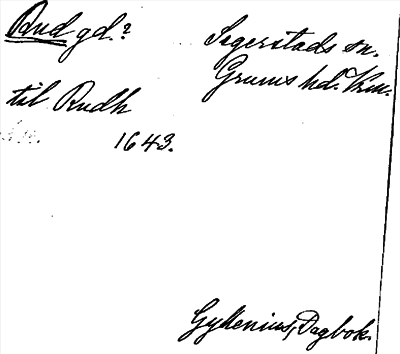 Rud gd.?
Segerstads sn.
Grums hd. Vrm.
til Rudh
1643.
Gyllenius, Dagbok.